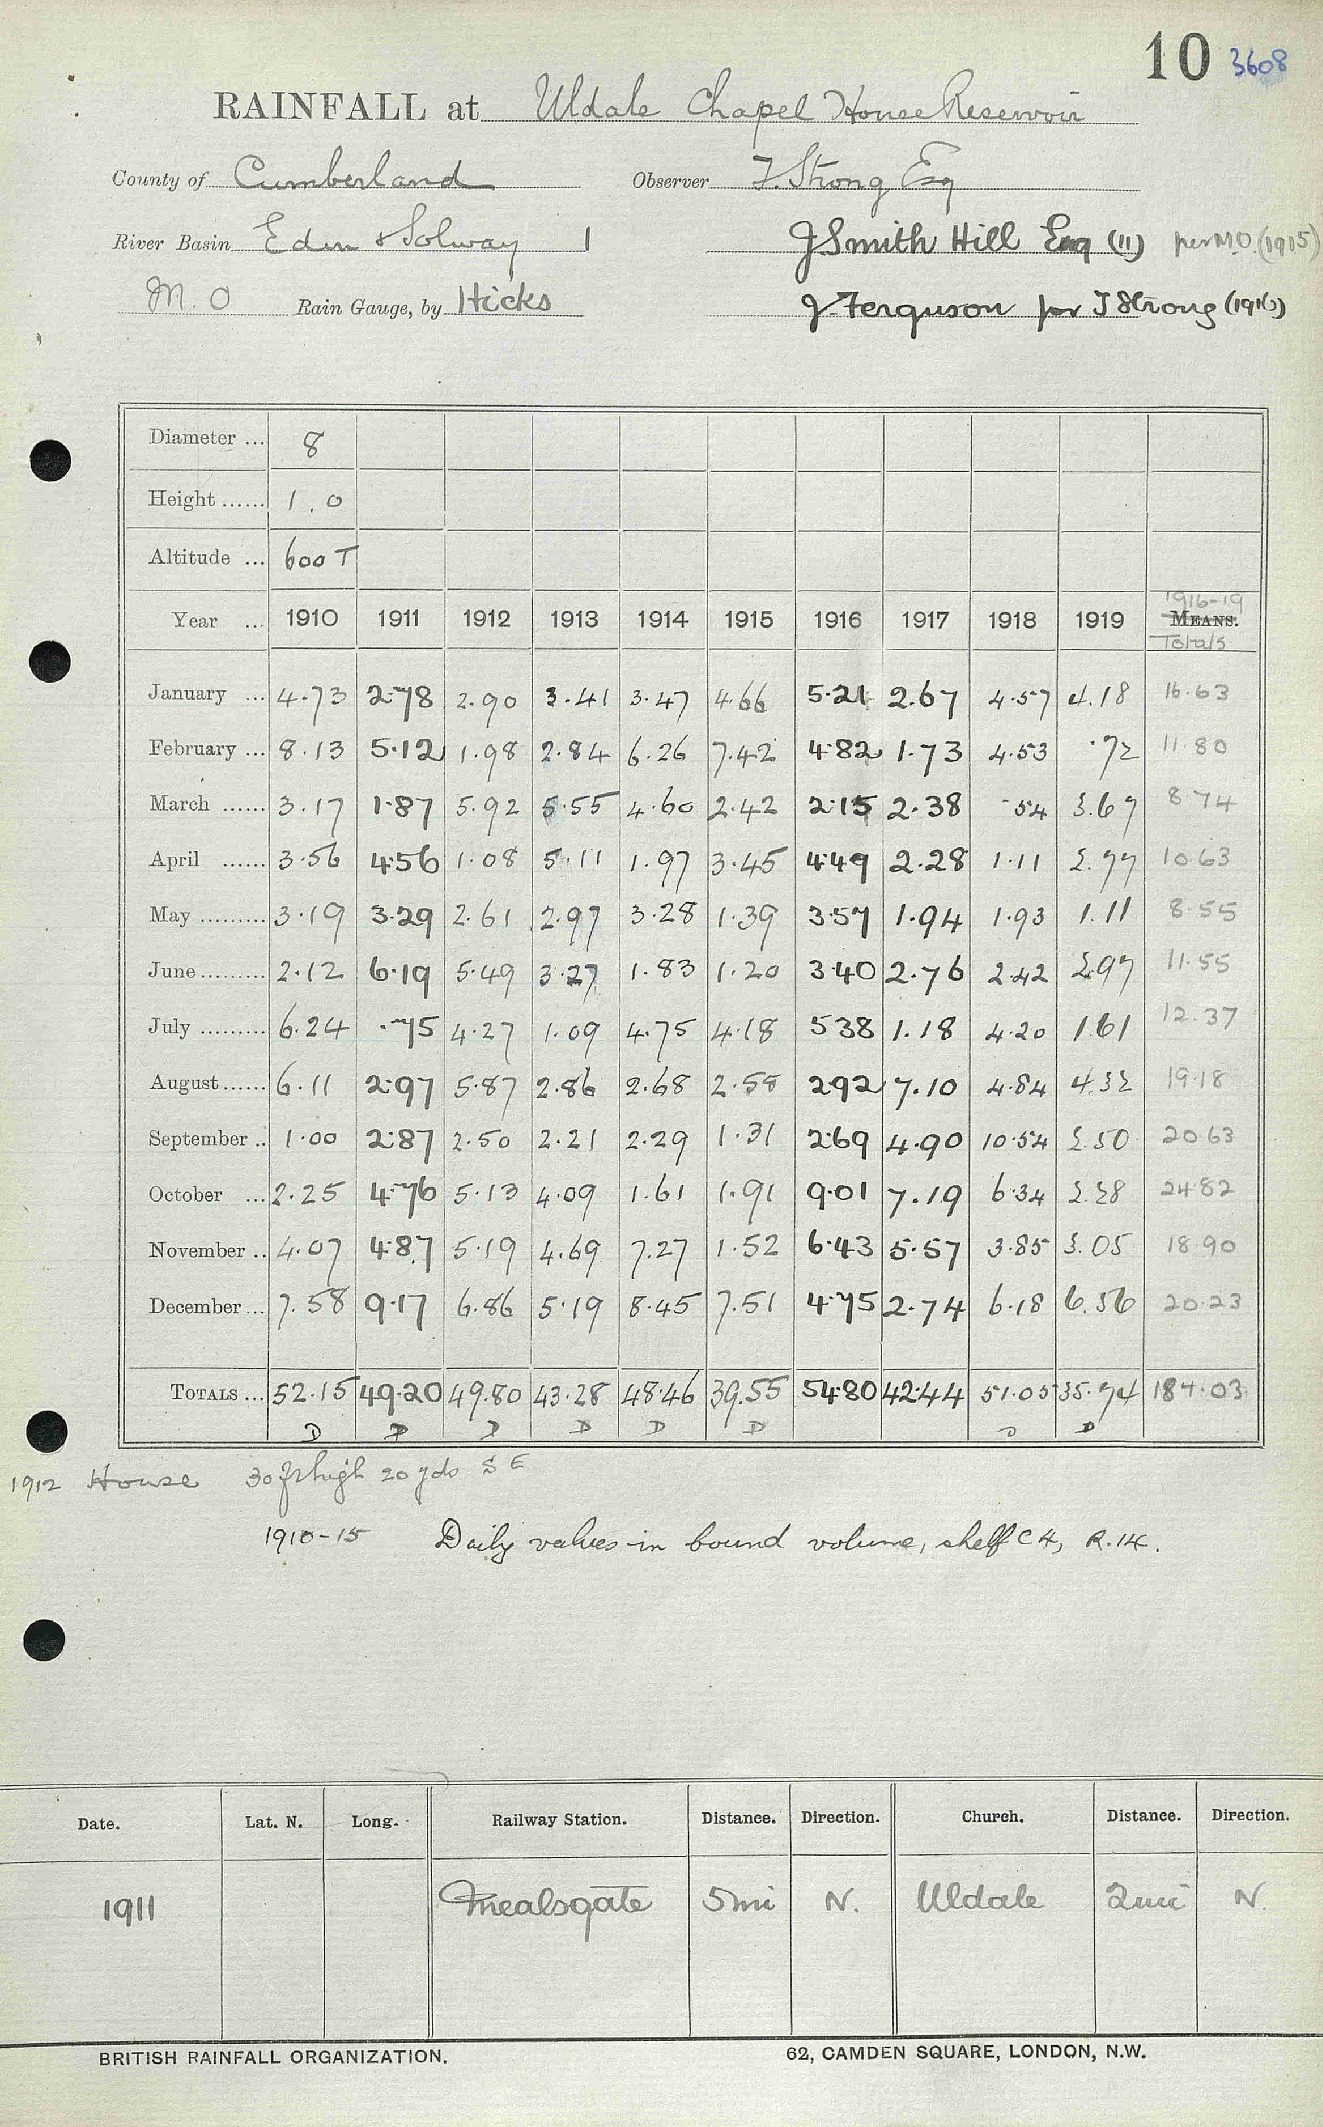 10 3608
RAINFALL at Uldale Chapel House Reservoir
County of Cumberland Observer F. Strong Esq
River Basin Eden & Solway 1 J Smith Hill Esq (11) per M.O. (1915)
M.O Rain Gauge, by Hicks J. Ferguson for J Strong (1916)
Diameter ... 8
Height ...... 1.0
Altitude ... 600 T
Year ... 1910 1911 1912 1913 1914 1915 1916 1917 1918 1919 1916-19 MEANS. Totals
January ... 4.73 2.78 2.90 3.41 3.47 4.66 5.21 2.67 4.57 4.18 16.63
February ... 8.13 5.12 1.98 2.84 6.26 7.42 4.82 1.73 4.53 .72 11.80
March ...... 3.17 1.87 5.92 5.55 4.60 2.42 2.15 2.38 .54 3.67 8.74
April ...... 3.56 4.56 1.08 5.11 1.97 3.45 4.49 2.28 1.11 2.77 10.63
May ......... 3.19 3.29 2.61 2.97 3.28 1.39 3.57 1.94 1.93 1.11 8.55
June ......... 2.12 6.19 5.49 3.27 1.83 1.20 3.40 2.76 2.42 2.97 11.55
July ......... 6.24 .75 4.27 1.09 4.75 4.18 5.38 1.18 4.20 1.61 12.37
August ...... 6.11 2.97 5.87 2.86 2.68 2.58 2.92 7.10 4.84 4.32 19.18
September .. 1.00 2.87 2.50 2.21 2.29 1.31 2.69 4.90 10.54 2.50 20.63
October ... 2.25 4.76 5.13 4.09 1.61 1.91 9.01 7.19 6.34 2.28 24.82
November .. 4.07 4.87 5.19 4.69 7.27 1.52 6.43 5.57 3.85 3.05 18.90
December ... 7.58 9.17 6.86 5.19 8.45 7.51 4.75 2.74 6.18 6.56 20.23
TOTALS ... 52.15 49.20 49.80 43.28 48.46 39.55 54.80 42.44 51.05 35.74 184.03
D D D D D D D D
1912 House 30 ft high 20 yds S E
1910-15 Daily values in bound volume, shelf C 4, R.14.
Date. Lat. N. Long. Railway Station. Distance. Direction. Church. Distance. Direction.
1911 Mealsgate 5 mi N. Uldale 2 mi N.
BRITISH RAINFALL ORGANIZATION. 62, CAMDEN SQUARE, LONDON, N.W.